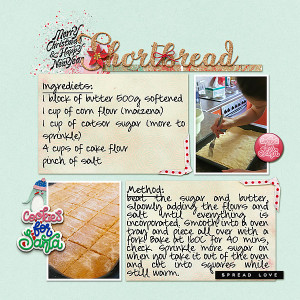 Merry
Christmas
& Happy
New Year
Shortbread
Ingrediets:
1 block of butter 500g softened
1 cup of corn flour (maizena)
1 cup of catsor sugar (more to
sprinkle)
4 cups of cake flour
pinch of salt
Cookies
for
Santa
Method:
beat the sugar and butter,
slaowly adding the flours and
salt until everything is
incorporated. Smooth into a oven
tray and piece all over with a
fork! Bake at 160C for 40 mins,
check sprinkle more sugar on
when you take it out of the oven
and cut into squares while
still warm.
SPREAD LOVE